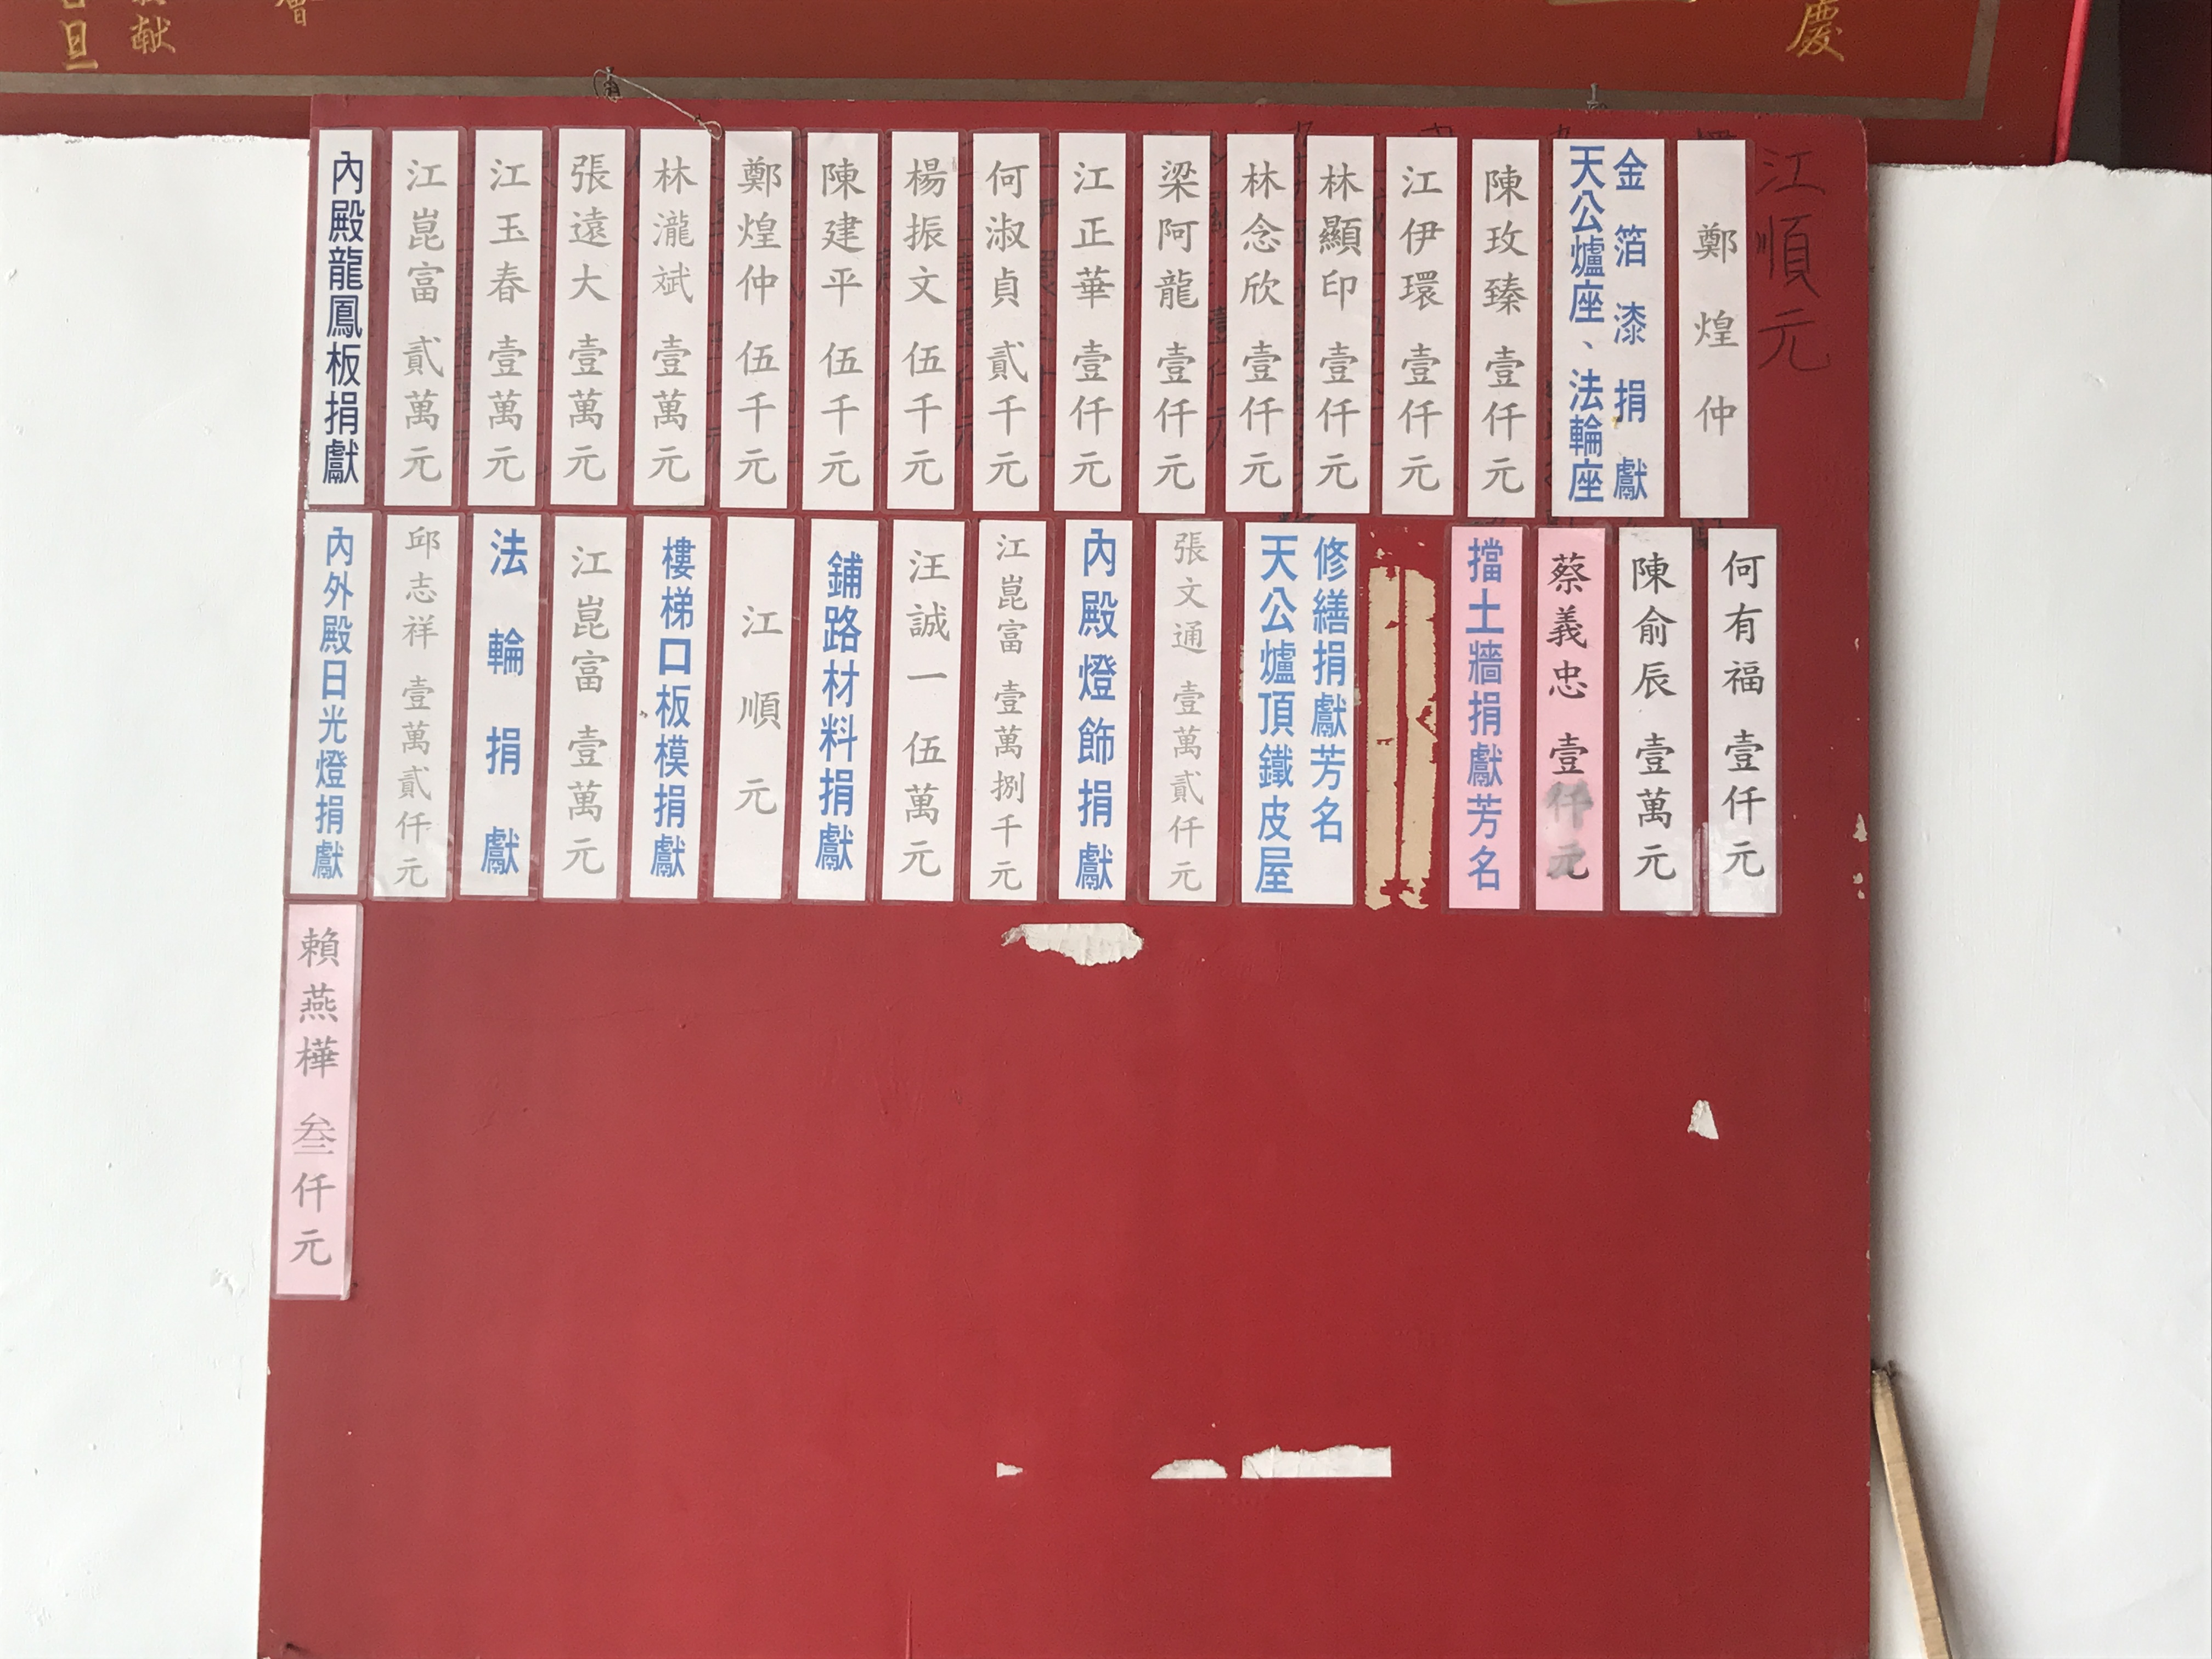 旦
献
慶
內殿龍鳳板捐獻
江崑富 貳萬元
江玉春 壹萬元
張遠大 壹萬元
林瀧斌 壹萬元
鄭煌仲 伍千元
陳建平 伍千元
楊振文 伍千元
何淑貞 貳千元
江正華 壹仟元
梁阿龍 壹仟元
林念欣 壹仟元
林顯印 壹仟元
江伊環 壹仟元
陳玫臻 壹仟元
天公爐座、法輪座
金箔漆捐獻
鄭煌仲
江順元
內外殿日光燈捐獻
邱志祥 壹萬貳仟元
法輪捐獻
江崑富 壹萬元
樓梯口板模捐獻
江順元
鋪路材料捐獻
汪誠一 伍萬元
江崑富 壹萬捌千元
內殿燈飾捐獻
張文通 壹萬貳仟元
天公爐頂鐵皮屋
修繕捐獻芳名
擋土牆捐獻芳名
蔡義忠 壹仟元
陳俞辰 壹萬元
何有福 壹仟元
賴燕樺 叁仟元